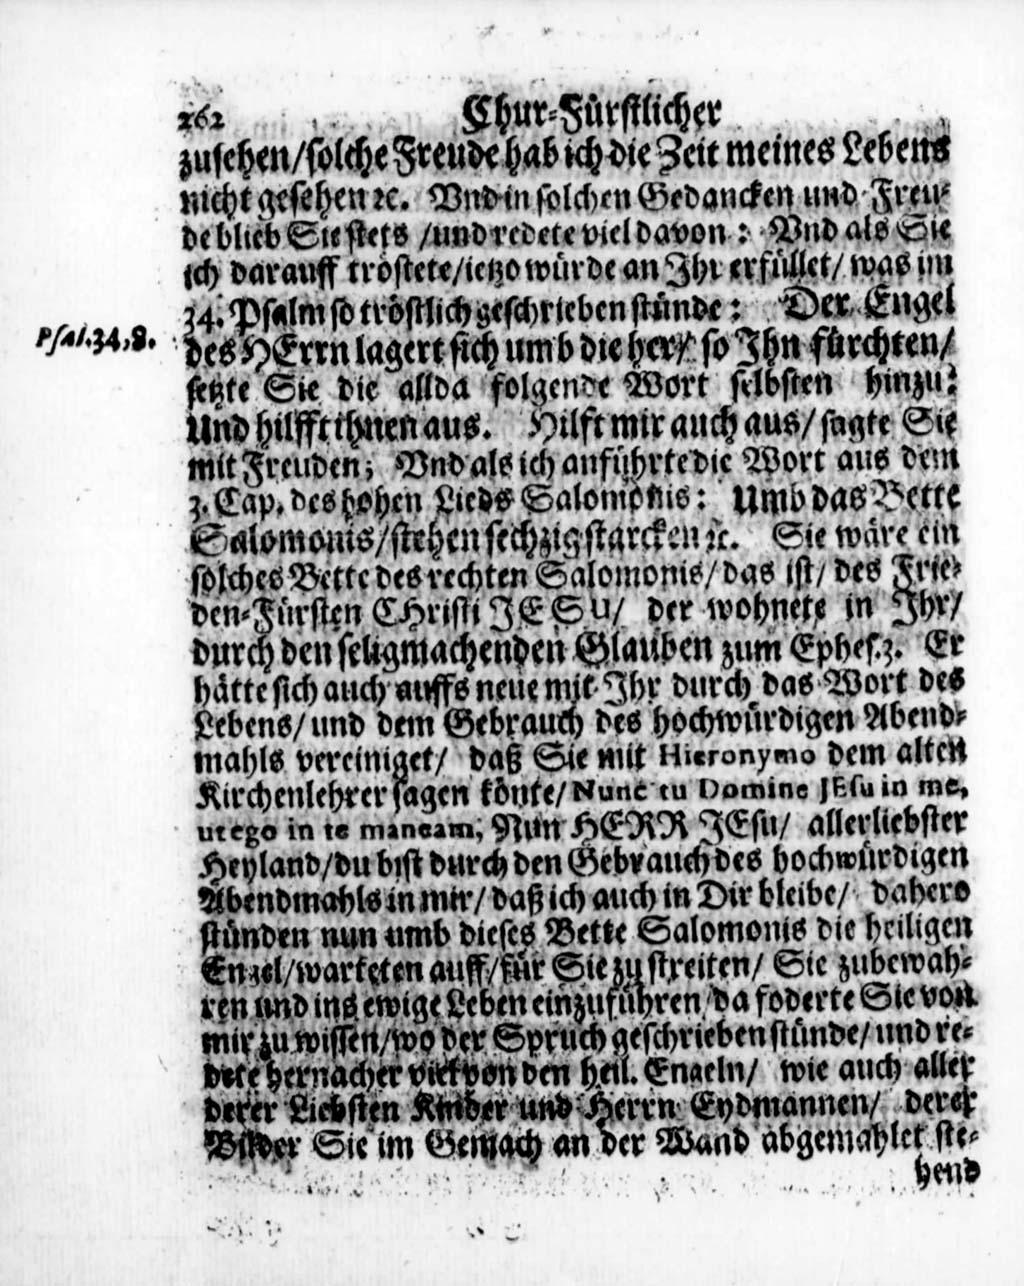 262 Chur-Fürstlicher
zusehen/solche Freude hab ich die Zeit meines Lebens
nicht gesehen ꝛc. Vnd in solchen Gedancken und Freu-
de blieb Sie stets /und redete viel davon: Vnd als Sie
ich darauff tröstete/ietzo würde an Ihr erfüllet/ was im
34. Psalm so tröstlich geschrieben stünde: Der Engel
Psal.34,8.
des HErrn lagert sich umb die her/ so Ihn fürchten/
setzte Sie die allda folgende Wort selbsten hinzu:
Und hilfft ihnen aus. Hilft mir auch aus/ sagte Sie
mit Freuden; Vnd als ich anführte die Wort aus dem
3. Cap. des hohen Lieds Salomonis: Umb das Bette
Salomonis/stehen sechzig starcken ꝛc. Sie wäre ein
solches Bette des rechten Salomonis/ das ist/ des Frie-
den-Fürsten CHristi JESU/ der wohnete in Ihr/
durch den seligmachenden Glauben zum Ephes.3. Er
hätte sich auch auffs neue mit Ihr durch das Wort des
Lebens/ und dem Gebrauch des hochwürdigen Abend-
mahls vereiniget/ daß Sie mit Hieronymo dem alten
Kirchenlehrer sagen könte/ Nunc tu Domine JEsu in me,
ut ego in te maneam, Nun HERR JEsu/ allerliebster
Heyland/du bist durch den Gebrauch des hochwürdigen
Abendmahls in mir/ daß ich auch in Dir bleibe/ dahero
stünden nun umb dieses Bette Salomonis die heiligen
Engel/warteten auff/für Sie zu streiten/ Sie zubewah-
ren und ins ewige Leben einzuführen/da foderte Sie von
mir zu wissen/wo der Spruch geschrieben stünde/ und re-
dete hernacher viel von den heil. Engeln/ wie auch aller
derer Liebsten Kinder und Herrn Eydmannen/ derer
Bilder Sie im Gemach an der Wand abgemahlet ste-
hend